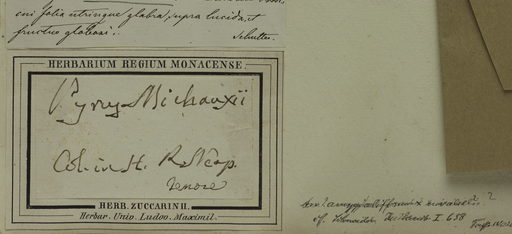 cui folia utrinque glabra, supra lucida, et
fructus globosi.
Schultes.
HERBARIUM REGIUM MONACENSE
Pyrus Michauxii
Col. in H. R. Neap.
Tenore
HERB. ZUCCARINII.
Herbar. Univ. Ludov. Maximil.
cf. Schneider, I 658